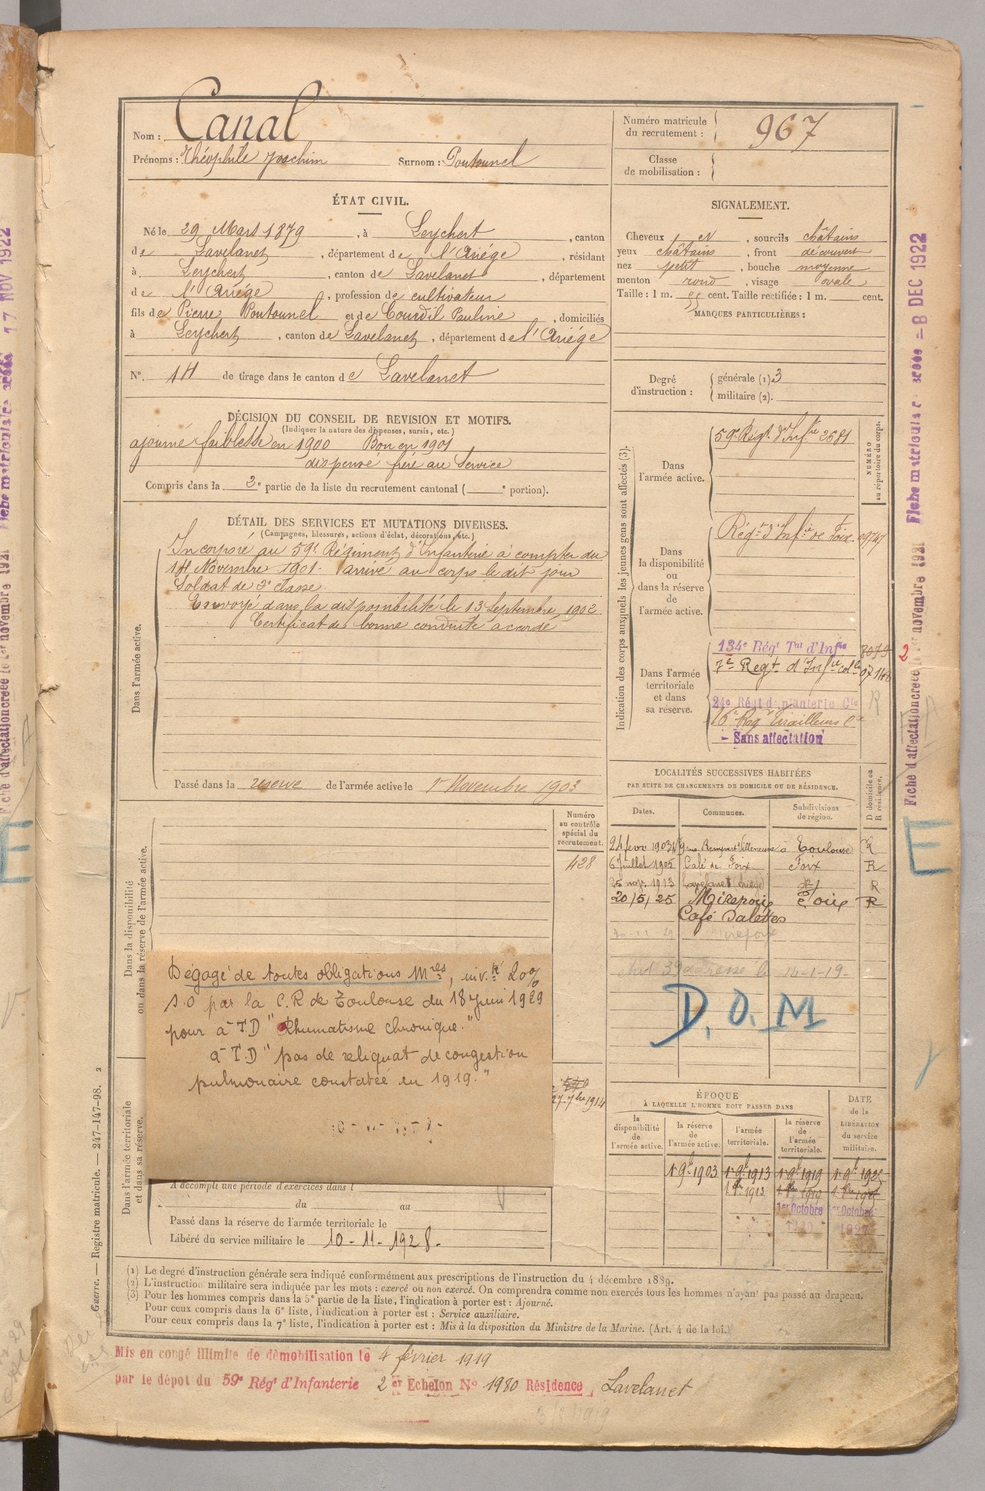 Nom : Canal
Prénoms : Théophile Joachim Surnom : Pontounel
Numéro matricule du recrutement : 967
Classe de mobilisation :
ÉTAT CIVIL.
Né le 29 Mars 1879, à Leychert, canton
de Lavelanet, département de l'Ariége, résidant
à Leychert, canton de Lavelanet, département
de l'Ariége, profession de cultivateur
fils de Pierre Pontounel et de Courdil Pauline, domiciliés
à Leychert, canton de Lavelanet, département de l'Ariége
N° 14 de tirage dans le canton de Lavelanet
SIGNALEMENT.
Cheveux et, sourcils châtains
yeux châtains, front découvert
nez petit, bouche moyenne
menton rond, visage ovale
Taille : 1 m. cent. Taille rectifiée : 1 m. cent.
MARQUES PARTICULIÈRES :
Degré d'instruction : générale (1) 3
militaire (2).
DÉCISION DU CONSEIL DE REVISION ET MOTIFS.
(Indiquer la nature des dispenses, sursis, etc.)
ajourné faiblesse en 1900 Bon en 1901
dispensé frère au Service
Compris dans la 2e partie de la liste du recrutement cantonal ( e portion).
DÉTAIL DES SERVICES ET MUTATIONS DIVERSES.
(Campagnes, blessures, actions d'éclat, décorations, etc.)
Dans l'armée active.
Incorporé au 59e Régiment d'Infanterie à compter du
14 Novembre 1901 - arrivé au corps le dit jour
Soldat de 2e classe
Envoyé dans la disponibilité le 13 Septembre 1902
Certificat de bonne conduite accordé
Passé dans la réserve de l'armée active le 1er Novembre 1903
Indication des corps auxquels les jeunes gens sont affectés (3).
NUMÉRO au répertoire du corps.
Dans l'armée active.
59e Régt d'Infie 2581
Dans la disponibilité ou dans la réserve de l'armée active.
Régt d'Infie de Foix
Dans l'armée territoriale et dans sa réserve.
134e Régt Tal d'Infie
7e Régt d'Infie colle
24e Régt d'Infanterie Cle
16e Rég Tirailleurs
- Sans affectation
LOCALITÉS SUCCESSIVES HABITÉES
PAR SUITE DE CHANGEMENTS DE DOMICILE OU DE RÉSIDENCE.
Dates. Communes. Subdivisions de région. D domicile ou R résidence.
24 févr 1903 Toulouse R
6 juillet 1905 Café de Foix Foix R
25 nov 1913 Lavelanet R
20/5/25 Mirepoix Foix R
Café
D.O.M
Dans la disponibilité ou dans la réserve de l'armée active.
Numéro au contrôle spécial du recrutement.
428
Dégagé de toutes obligations Mres, inv.té 20%
S.O par la C.R de Toulouse du 18 Juin 1929
pour à TD "Rhumatisme chronique."
à TD "pas de reliquat de congestion
pulmonaire constatée en 1919."
Dans l'armée territoriale et dans sa réserve.
A accompli une période d'exercices dans l
du au
Passé dans la réserve de l'armée territoriale le
Libéré du service militaire le 10-11-1928.
ÉPOQUE
À LAQUELLE L'HOMME DOIT PASSER DANS
DATE de la LIBÉRATION du service militaire.
la disponibilité de l'armée active. la réserve de l'armée active. l'armée territoriale. la réserve de l'armée territoriale.
1er 9bre 1903 1er 9bre 1913 1er 9bre 1919
1er Octobre 1er Octobre
(1) Le degré d'instruction générale sera indiqué conformément aux prescriptions de l'instruction du 4 décembre 1889.
(2) L'instruction militaire sera indiquée par les mots : exercé ou non exercé. On comprendra comme non exercés tous les hommes n'ayant pas passé au drapeau.
(3) Pour les hommes compris dans la 5e partie de la liste, l'indication à porter est : Ajourné.
Pour ceux compris dans la 6e liste, l'indication à porter est : Service auxiliaire.
Pour ceux compris dans la 7e liste, l'indication à porter est : Mis à la disposition du Ministre de la Marine. (Art. 4 de la loi.)
Mis en congé illimité de démobilisation le 4 février 1919
par le dépôt du 59e Rég' d'Infanterie 2e Echelon No 1980 Résidence, Lavelanet
Guerre. — Registre matricule. — 247-147-98. 2
Fiche matricule créée - 8 DEC 1922
Fiche d'affectation créée le 1er novembre 1921
E
17 NOV 1922